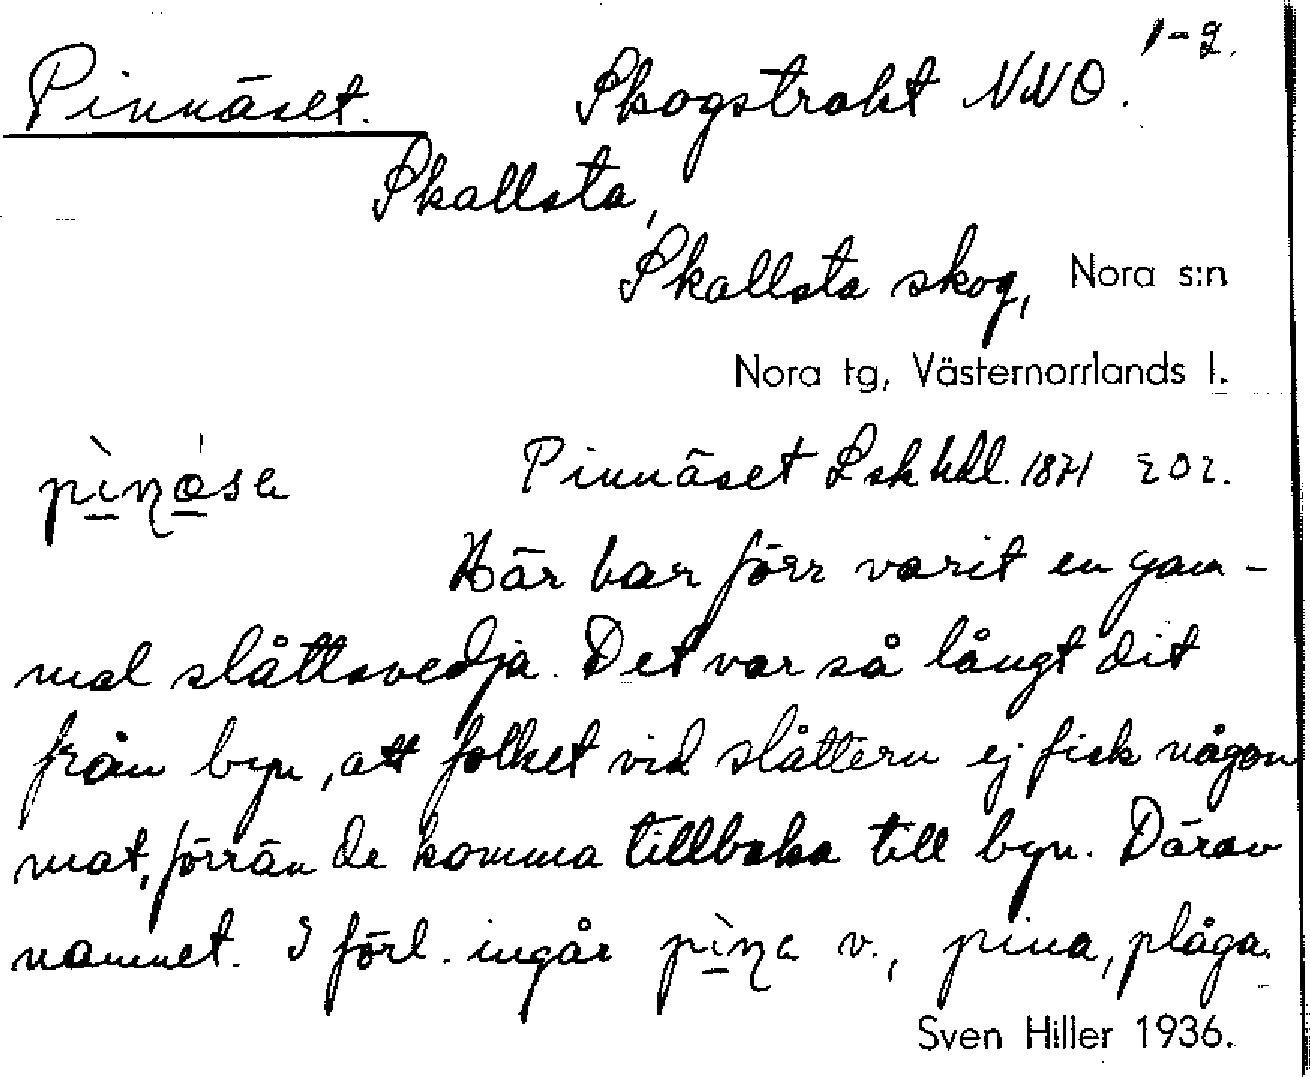 1-2.
Pinnäset. Skogstrakt NNO.
Skallsta,
Skallsta skog, Nora s:n
Nora tg, Västernorrlands l.
Pinnäset Lskhdl. 1871 202.
Här har förr varit en gam-
mal slåttsvedja. Det var så långt dit
från byn, att folket vid slåttern ej fick någon
mat, förrän de komma tillbaka till byn. Därav
namnet. I förl. ingår v., pina, plåga.
Sven Hiller 1936.